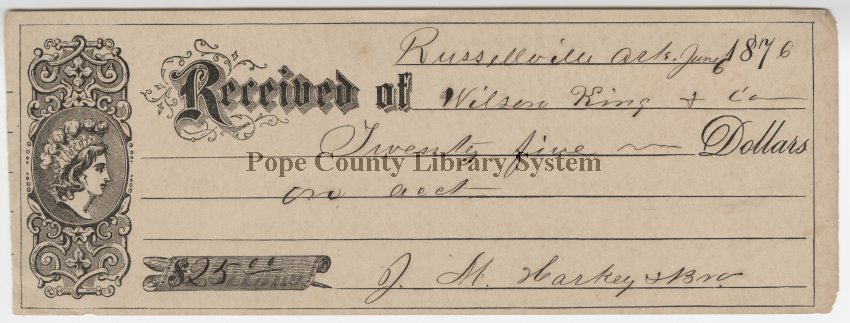 Russellville Ark. June 6 1876
Received of Wilson King & Co
Twenty five Dollars
Pope County Library System
on acct
$25.00
J. M. Harkey & Bro.